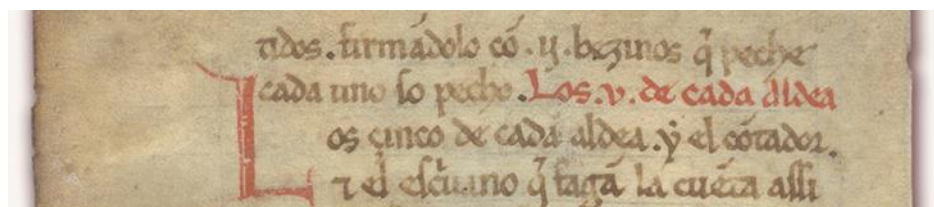 tidos. firmãdolo cõ .ij. bezinos q̃ peche
cada uno so pecho. Los .v. de cada aldea
Los çinco de cada aldea. ẏ el cõtador.
⁊ el escͥuano q̃ fagã la cuẽta assi